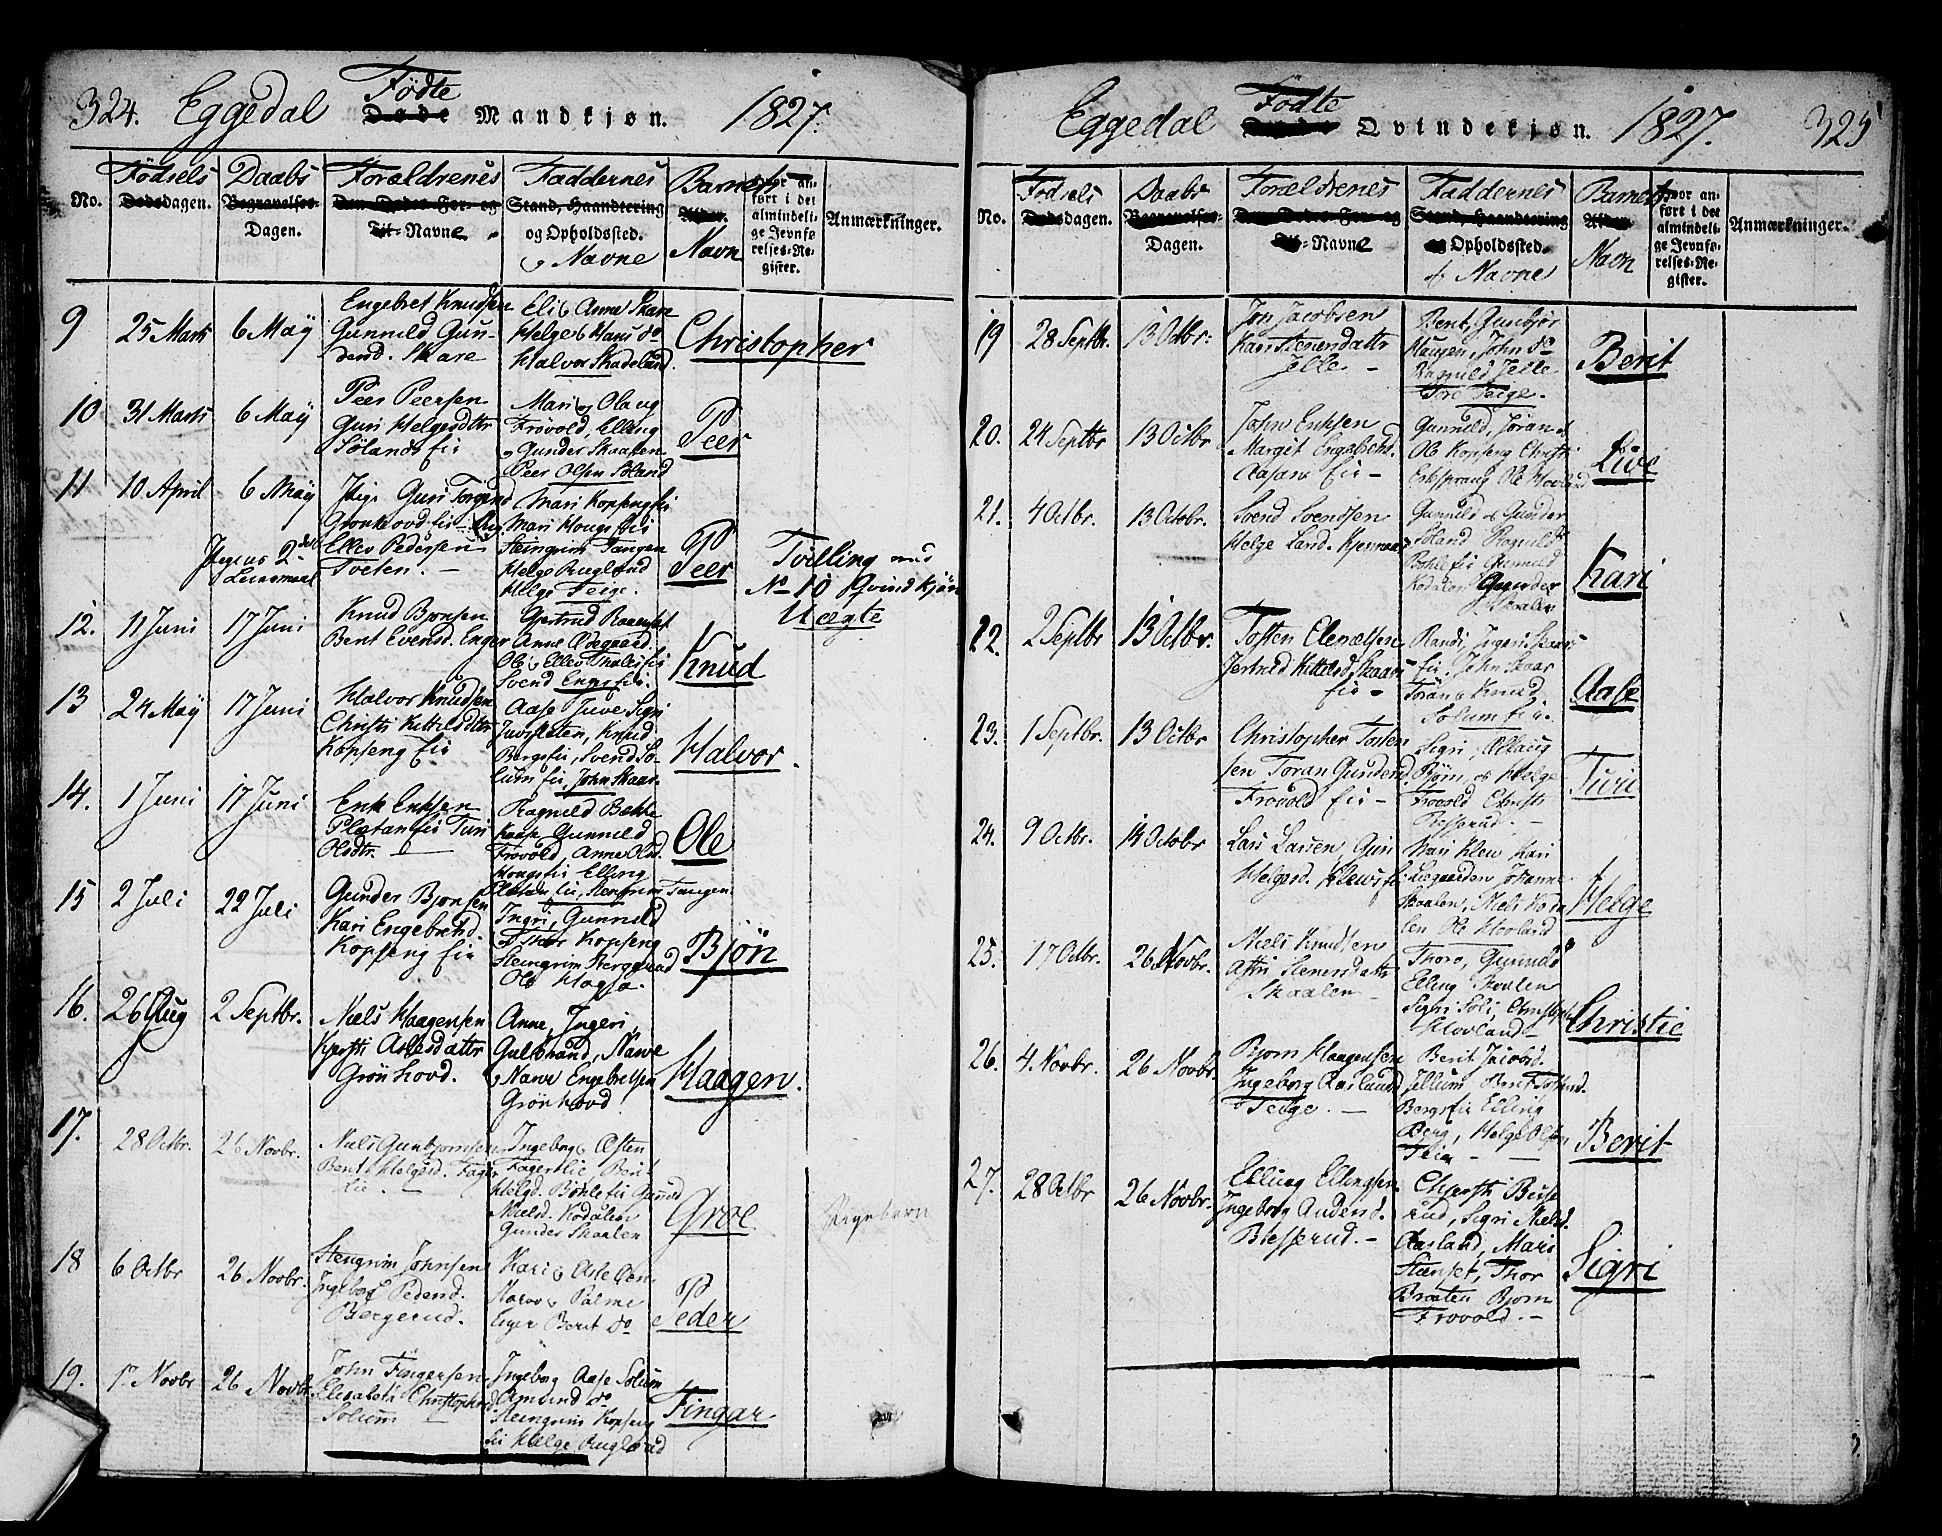 324. Eggedal Fødte Mandkjøn. 1827.
No.
Fødselsdagen.
Daabs Dagen.
Forældrenes Navne
Faddernes Stand, Haandtering og Opholdssted. Navne
Barnets Navn
Hvor anført i det almindelige Jevnførelses-Register.
Anmærkninger.
9
25 Marts
6 May
Engebret Knudsen
Gunnild Gun-
dersd. Skare
Anne Skare
Helge
Halvor Skadeland.
Christopher
10
31 Marts
6 May
Peer Peersen
Guri Helgesdttr
Sølands Eie
Mari Olaug
Frøvold, Elling
Gunder Skaalen
Peer Olsen Søland
Peer
11
10 April
6 May
Pige Guri
Grønhovd Eie
Ellev Pedersen
Tveten. —
Pigens 2den
Leiermaal
Mari Kopsengeie
Mari Hougs Eie
Steingrim Tangen
Helge
Helge Teige.
Peer
Tvilling med
No 10 Qvindkjøn
Uægte
12.
11 Juni
17 Juni
Knud Bjønsen
Berit Evensd. Enger
Gertrud
Anne Ødegaard
Ole, Ellev
Svend
Knud
13
24 May
17 Juni
Halvor Knudsen
Christi Kittilsdttr
Kopseng Eie
Aase Tuve Sigri
Knud
Bergseie, Svend So-
lum eie, John Skaar
Halvor
14.
1 Juni
17 Juni
Erik Eriksen
Plætan Eie Turi
Olsdtr.
Ragnild Bakke
Gunnild
Frøvold, Anne Olsd.
Hougseie Elling
Plætan Eie, Steingrim Tangen.
Ole
15
2 Juli
22 Juli
Gunder Bjønsen
Kari Engebretsd.
Kopseng Eie
Ingri, Gunnild
Thor Kopseng
Steingrim
Ole Hagsø.
Bjøn
16.
26 Aug
2 Septbr.
Niels Haagensen
Kjersti Aslesdattr
Grønhovd.
Anne, Ingeri,
Gulbrand, Narve
Narve Engebretsen
Grønhovd
Haagen.
17.
28 Octbr.
26 Novbr.
Niels Gunbjørnsen
Berit Helgesd. Fager-
lie. —
Ingeborg, Østen
Fagerlie Berit
Helgd. Bøhle Eie Gunild
Nielsd. Kodalen
Gunder Skaalen
Groe
Pigebarn
18
6 Octbr
26 Novbr.
Stengrim Johnsen
Ingeborg Pedersd.
Bergerud.
Kari
Halvor Palme
Enger Berit do
Peder
19.
1 Novbr
26 Novbr.
John Fingersen
Elisabeth Christophersd.
Solum —
Ingeborg Aase Solum
Amund do
Steingrim Kopseng
Eie Helge
Fingar
Eggedal Fødte Qvindekjøn. 1827. 325
No.
Fødselsdagen.
Daabs Dagen.
Forældrenes Navne
Faddernes Opholdssted. Navne
Barnets Navn
Hvor anført i det almindelige Jevnførelses-Register.
Anmærkninger.
19
28 Septbr.
13 Octbr:
Jon Jacobsen
Kari Stenersdattr
Jelle —
Berit, Gunbjør
Haugen, John do
Ragnild Jelle
Tore Teige.
Berit
20.
24 Septbr
13 Octbr
John Eriksen
Margit Engebretsd.
Aasans Eie —
Gunnild, Jøran
Ole Kopseng Christi
Ole Hovland
Live
21.
4 Octbr.
13 Octobr.
Svend Svendsen
Helge Land.
Gunnild & Gunder
Søland Ragnild
Bøhle Eie Gunnild
Kodalen Gunder
Skaalen
Kari
22.
2 Septbr
13 Octbr.
Tosten
Jertrud Kittilsd. Skaars
Eie —
Randi, Jngeri Skaars
Eie. John Skaar
Toran & Knud
Solum Eie.
Aase
23.
1 Septbr.
13 Octbr
Christopher Tosten
sen Toran Gundersd.
Frøvold Eie —
Sigri, Ollaug
Bjørn, & Helge
Frøvold Christi
Besserud. —
Turi
24.
9 Octbr.
14 Octobr
Lars Larsen, Guri
Helgesd. Klews Eie
Mari Klew Kari
Johanne
Skaalen, Niels Koda
len Ole Hovland
Helge
25.
17 Octbr.
26 Novbr.
Niels Knudsen
Stenersdattr
Skaalen —
Thoro, Gunnild
Elling Skaalen
Sigri Soli, Christoph
Hovland
Christie
26.
4. Novbr.
26 Novbr.
Bjørn Haagensen
Ingeborg Aaslund
Teige. —
Berit Jacobsd.
Jellum Berit Tostensd.
Bergs Eie Elling
Berg, Helge Olsen
Berit
27.
28 Octbr
26 Novbr.
Elling Ellingsen
Ingeborg Audensd.
Besserud. —
Chjersti Besse
rud, Sigri Nielsd.
Aasland, Mari
Thor
Braaten Bjørn
Frøvold. —
Sigri